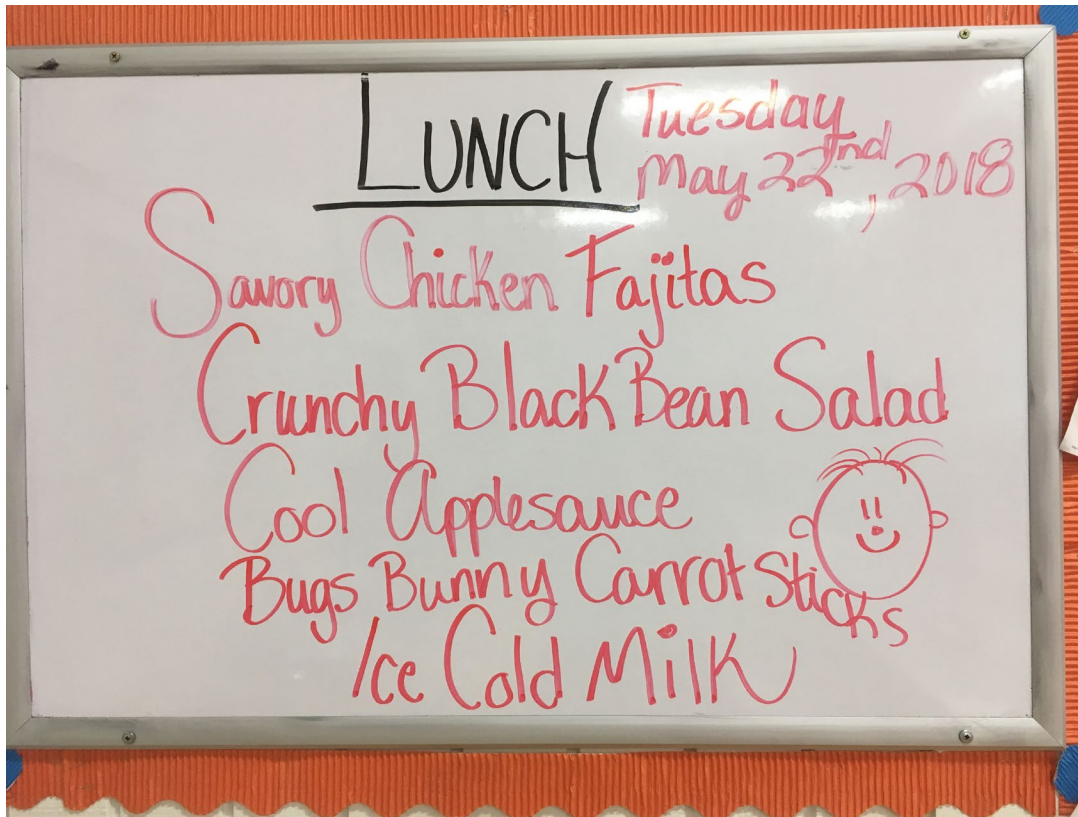 LUNCH
Tuesday
May 22nd, 2018
Savory Chicken Fajitas
Crunchy Black Bean Salad
Cool Applesauce
Bugs Bunny Carrot Sticks
Ice Cold Milk